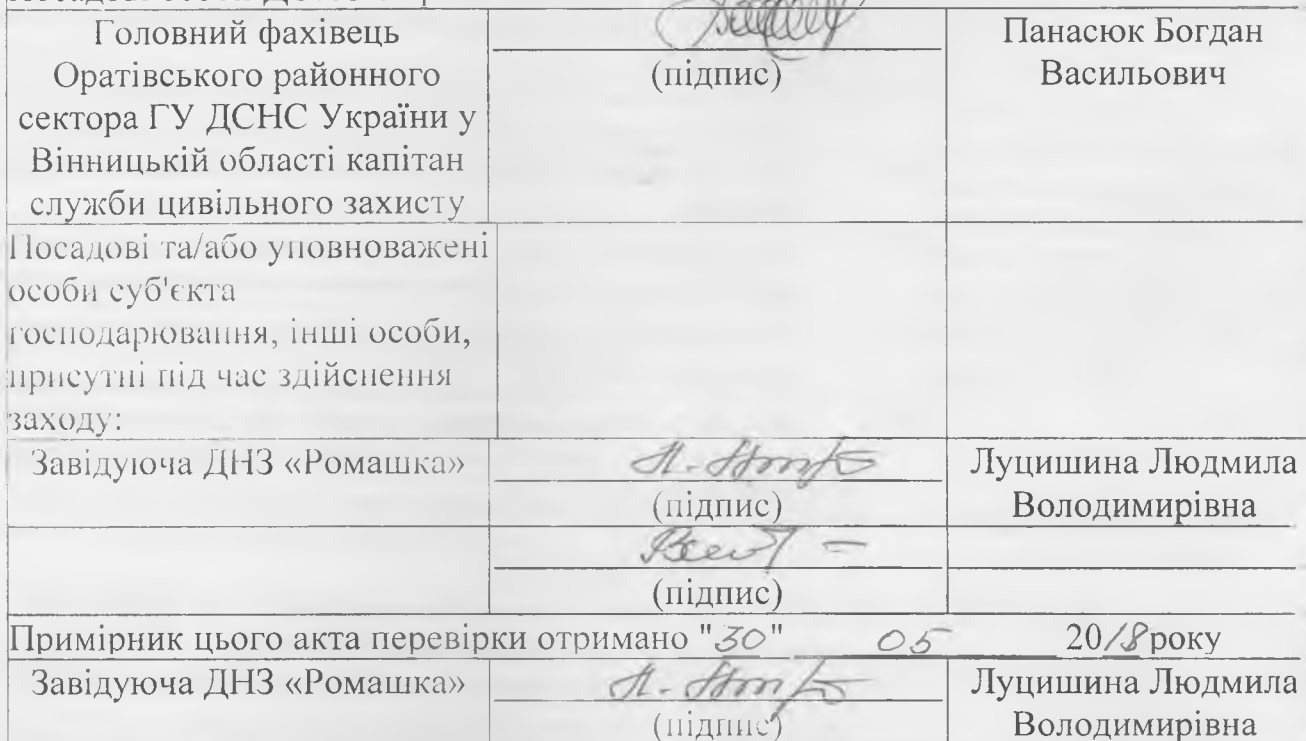 Головний фахівець
Оратівського районного
сектора ГУ ДСНС України у
Вінницькій області капітан
служби цивільного захисту
(підпис)
Панасюк Богдан
Васильович
Посадові та/або уповноважені
особи суб'єкта
господарювання, інші особи,
присутні під час здійснення
заходу:
Завідуюча ДНЗ «Ромашка»
(підпис)
Луцишина Людмила
Володимирівна
(підпис)
Примірник цього акта перевірки отримано "30" 05 2018 року
Завідуюча ДНЗ «Ромашка»
(підпис)
Луцишина Людмила
Володимирівна